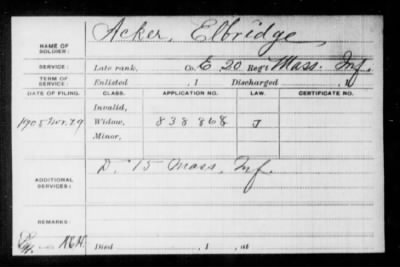 Acker, Elbridge
NAME OF SOLDIER:
SERVICE: Late rank, Co. E, 20 Reg't Mass. Inf.
TERM OF SERVICE: Enlisted , 1 Discharged , 1
DATE OF FILING. CLASS. APPLICATION NO. LAW. CERTIFICATE NO.
Invalid,
1905 Nov. 29 Widow, 838 868 J
Minor,
ADDITIONAL SERVICES: D. 15 Mass. Inf.
REMARKS:
Died , 1 , at